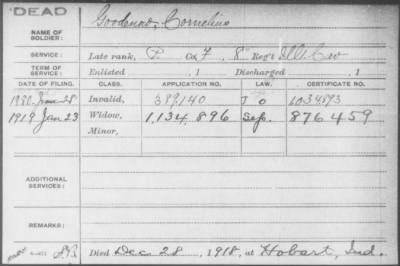 "DEAD"
NAME OF SOLDIER: Goodenno, Cornelius
SERVICE: Late rank, P. Co. F, 8" Reg't Ill. Cav
TERM OF SERVICE: Enlisted , 1 Discharged , 1
DATE OF FILING. CLASS. APPLICATION NO. LAW. CERTIFICATE NO.
28 Invalid, 389,140 J O
1919 Jan 23 Widow, 1,134,896 Sep. 876459
Minor,
ADDITIONAL SERVICES:
REMARKS:
Died Dec. 28, 1918, at Hobart, Ind.